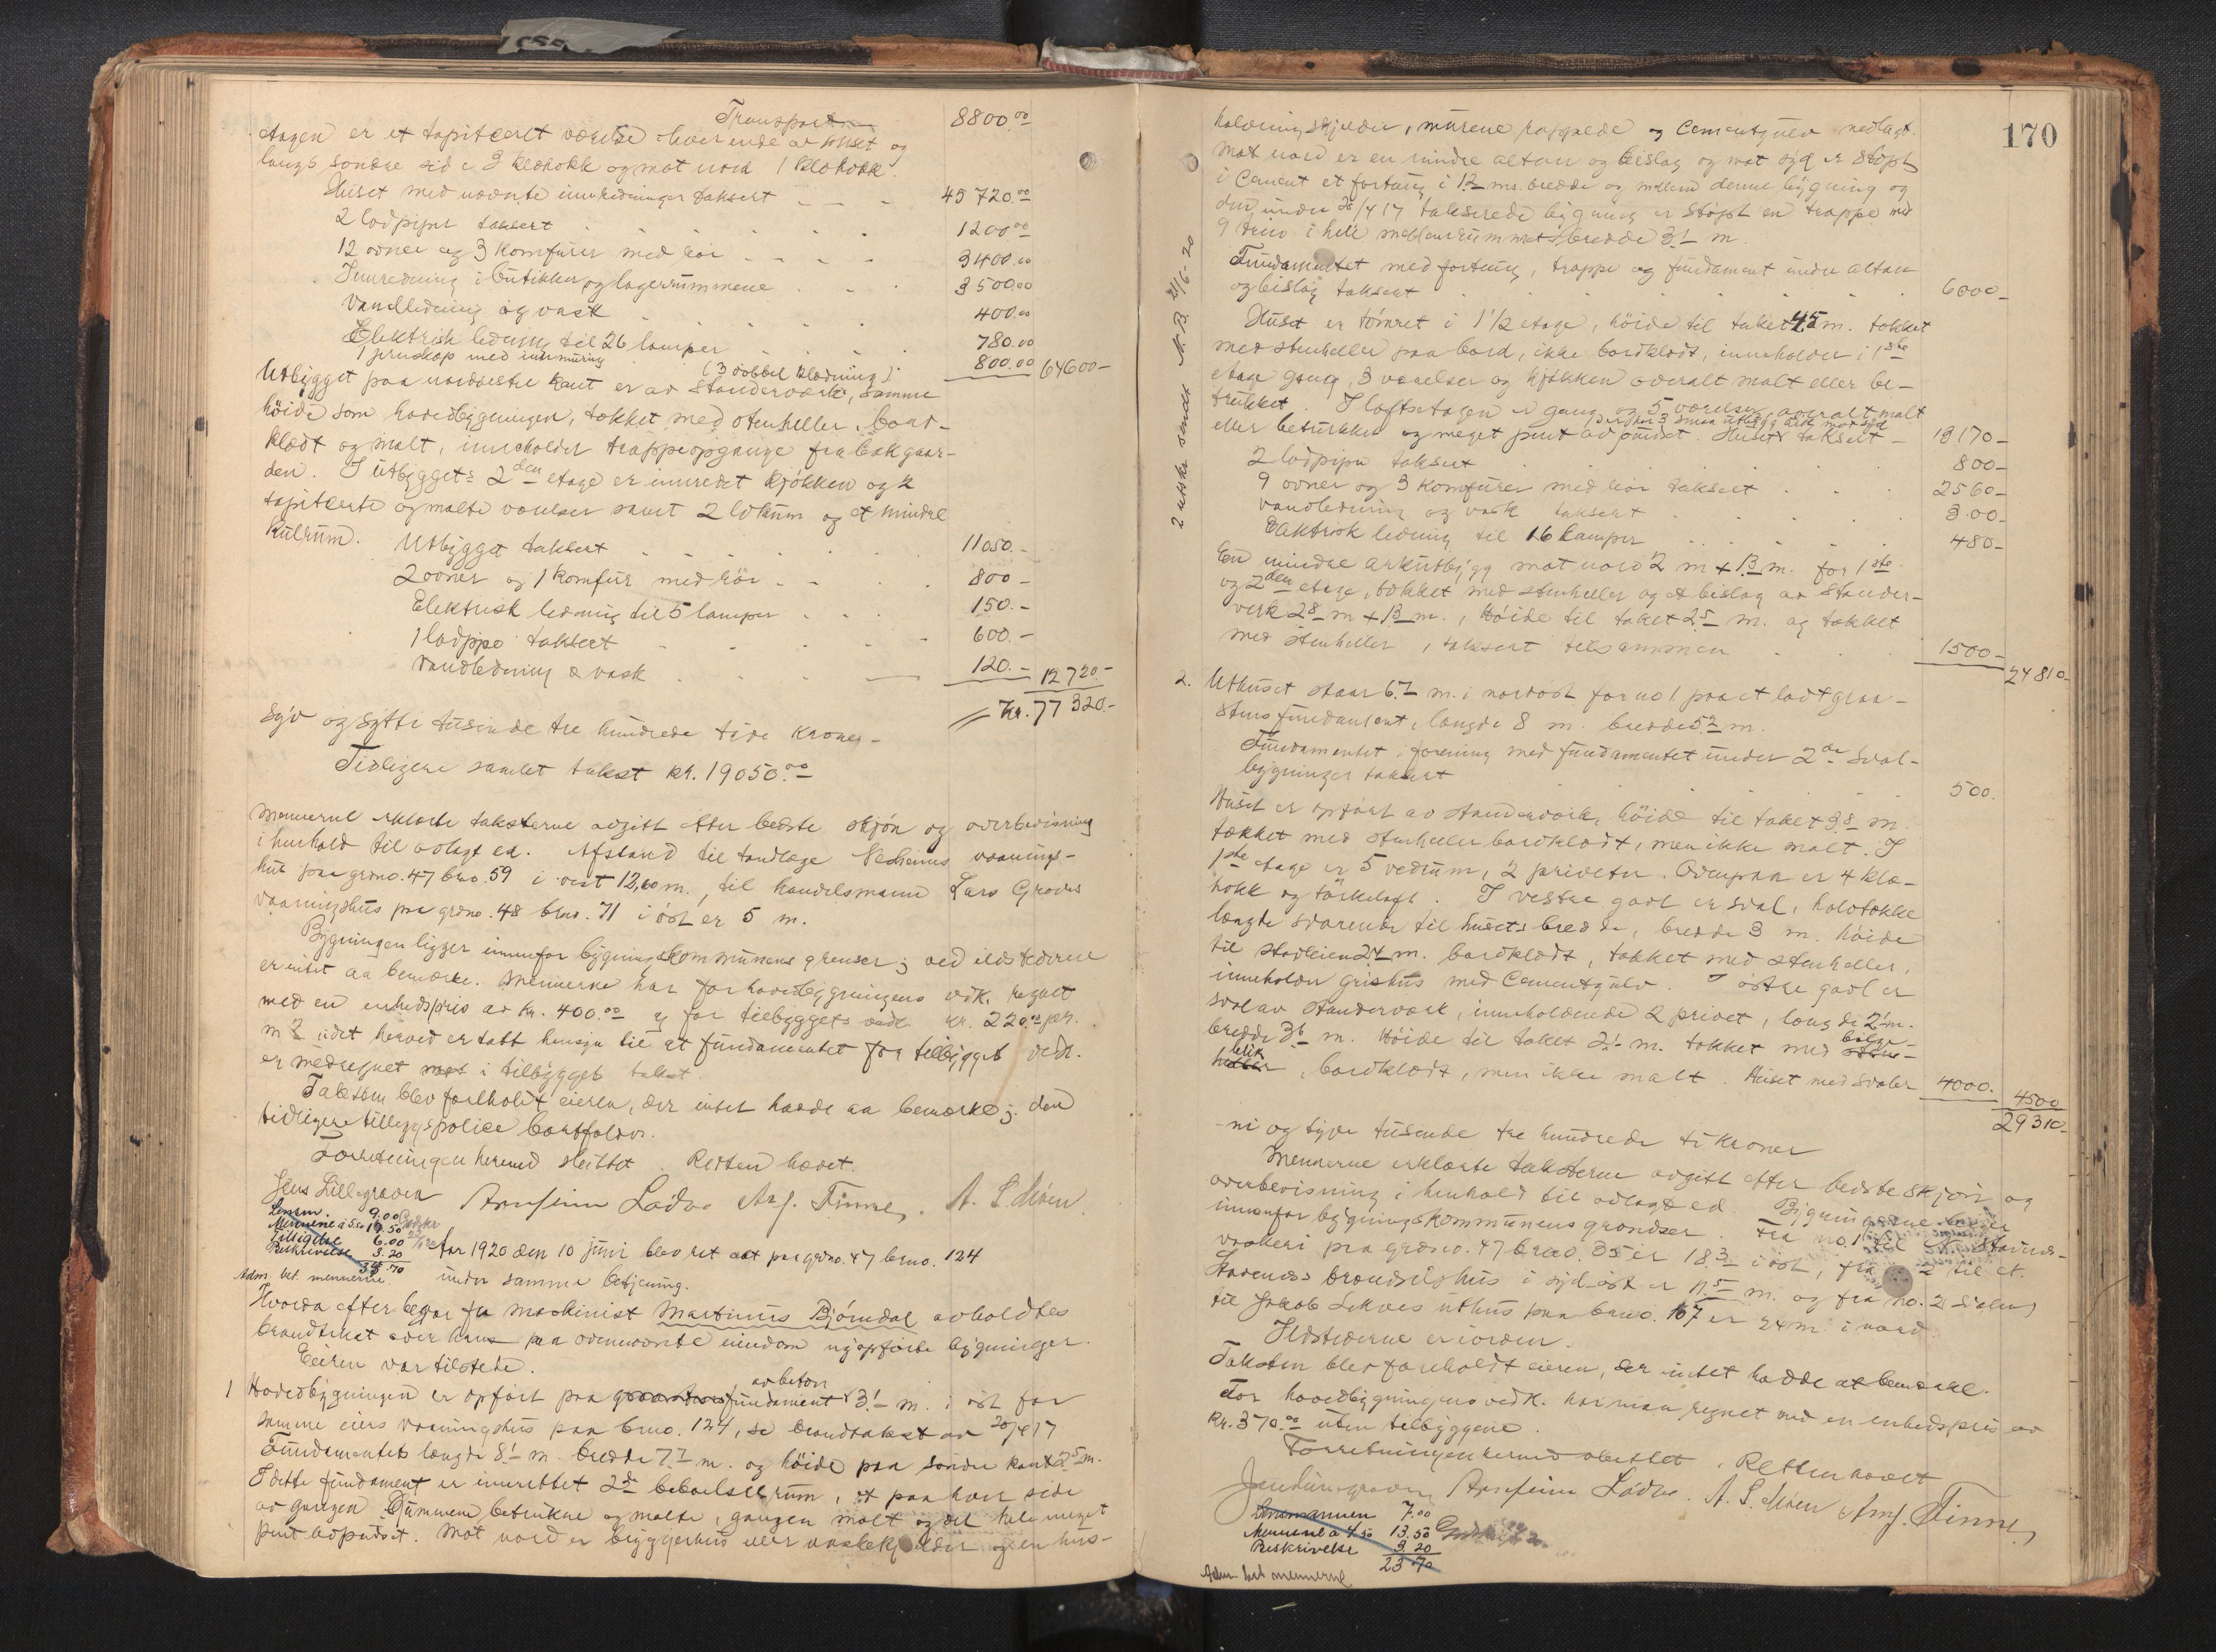 Transport 8800.00
etagen er et tapitseret værelse i hver ende av huset og
langs søndre side 3 klækokk og mot nord 1 klækokk.
Huset med nævnte innredninger taksert 45 720.00
2 ladpiper taksert 1200.00
12 ovner og 3 komfurer med rør 3400.00
Innredning i butikken og lagerrummene 3500.00
Vandledning og vask 400.00
Elektrisk ledning til 26 lamper 780.00
1 jernskap med innmuring 800.00 64600-
(3 dobbel klædning).
Utbygget paa nordvestre kant er av standerværk, samme
høide som hovedbygningen, tækket med stenheller, bord-
klædt og malt, inneholder trappeopgange fra bakgaar-
den. I utbyggets 2den etage er innredet kjøkken og 2
tapitserte og malte værelser samt 2 lokum og et mindre
kulrum.
Utbygget taksert 11050.-
2 ovner og 1 komfur med rør 800-
Elektrisk ledning til 5 lamper 150.-
1 ladpipe taksert 600.-
Vandledning & vask 120.- 12720.-
Kr. 77 320.-
Syv og sytti tusinde tre hundrede tyve kroner-
Tidligere samlet takst kr. 19050.00
Mennerne erklærte taksterne avgitt efter bedste skjøn og overbevisning
i henhold til avlagt ed. Afstand til tandlæge Nesheims vaanings-
hus paa grdno. 47 brno. 59 i vest 12,60 m., til handelsmann Lars Groves
vaaningshus paa grdno. 48 brno. 71 i øst er 5 m.
Bygningen ligger innenfor bygningskommunens grenser; ved ildstederne
er intet aa bemærke. Mennerne har for hovedbygningens vedk. regnet
med en enhedspris av kr. 400.00 og for tilbyggets vedk. kr. 220.00 pr.
m2 idet herved er tatt hensyn til at fundamentet for tilbygget vedk.
er medregnet i tilbyggets takst.
Taksten blev foreholdt eieren, der intet hadde aa bemærke; den
tidligere tilleggspolice bortfalder.
Forretningen hermed sluttet. Retten hævet.
Jens Lillegraven Arnfinn Lødve Arf. Finne, A. L. Møen.
Lensm. 9.00
Mennene à 5.50 16.50
Tilligelse 6.00
Beskrivelse 3.20
Adm. bet. mennerne.
Aar 1920 den 10 juni blev ret sat paa grdno. 47 brno. 124
under samme betjening.
Hvorda efter begjær fra maskinist Martinus Bjørndal avholdtes
brandtakst over hans paa ovennævnte eiendom nyopførte bygninger.
Eieren var tilstede.
1 Hovedbygningen er opført paa fundament av beton 3.1 m. i øst for
samme eiers vaaningshus paa brno. 124, se brandtakst av 26/4 17
Fundamentets længde 8.1 m. bredde 7.7 m. og høide paa søndre kant 2.5 m.
I dette fundament er innrettet 2de beboelsesrum, et paa hver side
av gangen. Rummene betrukne og malte, gangen malt og det hele meget
pent avpudset. Mot nord er bryggerhus eller vaskekjelder og en hus-
170
holdningskjelder, murene rappede og Cementgulv nedlagt.
Mot nord er en mindre altan og bislag og mot syd er støpt
i Cement et fortaug i 1.2 ms. bredde og mellem denne bygning og
den under 26/4 17 takserede bygning er støpt en trappe med
9 trin i hele mellemrummets bredde 3.1 m.
Fundamentet med fortaug, trappe og fundament under altan
og bislag taksert 6000-
Huset er tømret i 1 1/2 etage, høide til taket 4.5 m. tækket
med stenheller paa bord, ikke bordklædt, inneholder i 1ste
etage gang, 3 værelser og kjøkken overalt malt eller be-
trukket. I loftsetagen er gang og 5 værelser overalt malt
eller betrukken og meget pent avpudset. Huset taksert - 13170-
2 ladpiper taksert 800-
9 ovner og 3 komfurer med rør taksert 2560-
Vandledning og vask taksert 300-
Elektrisk ledning til 16 lamper 480-
En mindre arkutbygg mot nord 2 m x 1.3 m. for 1ste
og 2den etage, tækket med stenheller og et bislag av stander-
verk 2.8 m x 1.3 m., høide til taket 2.5 m. og tækket
med stenheller, taksert tilsammen 1500- 24810-
2. Uthuset staar 6.7 m. i nordost for no 1. paa et lødt graa-
stens fundament, længde 8 m. bredde 5.2 m.
Fundamentet i forening med fundamentet under 2de sval-
bygninger taksert 500.
Huset er opført av standerverk, høide til taket 3.8 m.
tækket med stenheller bordklædt, men ikke malt. I
1ste etage er 5 vedrum, 2 priveter. Ovenpaa er 4 klæ-
kokk og tørkeloft. I vestre gavl er sval, halvtække
længde svarende til husets bredde, bredde 3 m. høide
til stavleien 2.4 m. bordklædt, tækket med stenheller,
inneholder grishus med Cementgulv. I østre gavl er
sval av standerværk, inneholdende 2 privet, længde 2.1 m.
bredde 3.6 m. Høide til taket 2.1 m. tækket med bølge-
blik, bordklædt, men ikke malt. Huset med svaler 4000. 4500
29310-
-ni og tyve tusende tre hundrede ti kroner
Mennerne erklærte taksterne avgitt efter bedste skjøn og
overbevisning i henhold til avlagt ed. Bygningerne ligger
innenfor bygningskommunens grændser. Fra no 1 til N. Stavenes-
vaskeri paa grdno. 47 brno. 35 er 18.3 i øst, fra 2 til et.
Stavenæs brændselshus i sydøst er 11.5 m. og fra no. 2 svalen
til Jakob Lekves uthus paa brno. 107 er 24 m. i nord.
Ildstederne er i orden.
Taksten blev foreholdt eieren, der intet hadde at bemærke.
For hovedbygningens vedk. har man regnet med en enhedspris av
kr. 370.00 uten tilbyggene.
Forretningen hermed sluttet. Retten hævet
Jens Lillegraven Arnfinn Lødve. A. L. Møen Arf. Finne,
Lensmannen 7.00
Mennene à 4.50 13.50
Beskrivelse 3.20
23.70
Adm. bet. mennerne
2 utskr. sendt N.B. 21/6-20